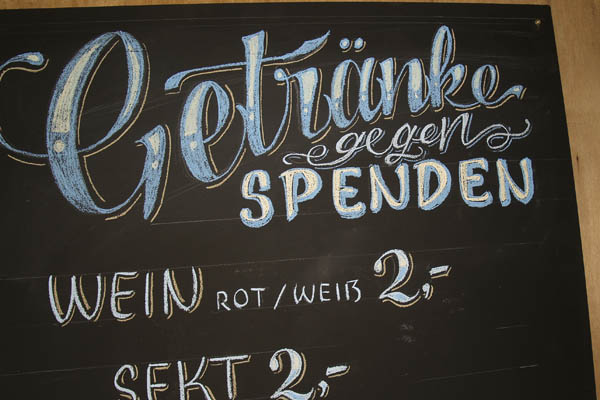 Getränke
gegen
SPENDEN
WEIN ROT/WEIß 2,-
SEKT 2,-